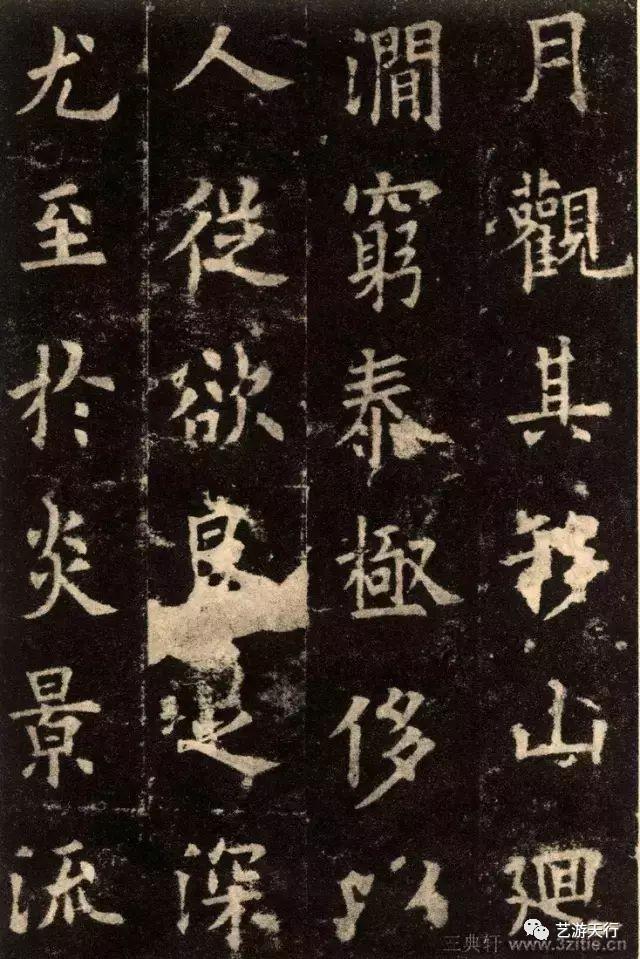 月觀其移山廻
澗窮泰極侈以
人從欲良足深
尤至於炎景流
艺游天行
三典轩 www.3zitie.cn